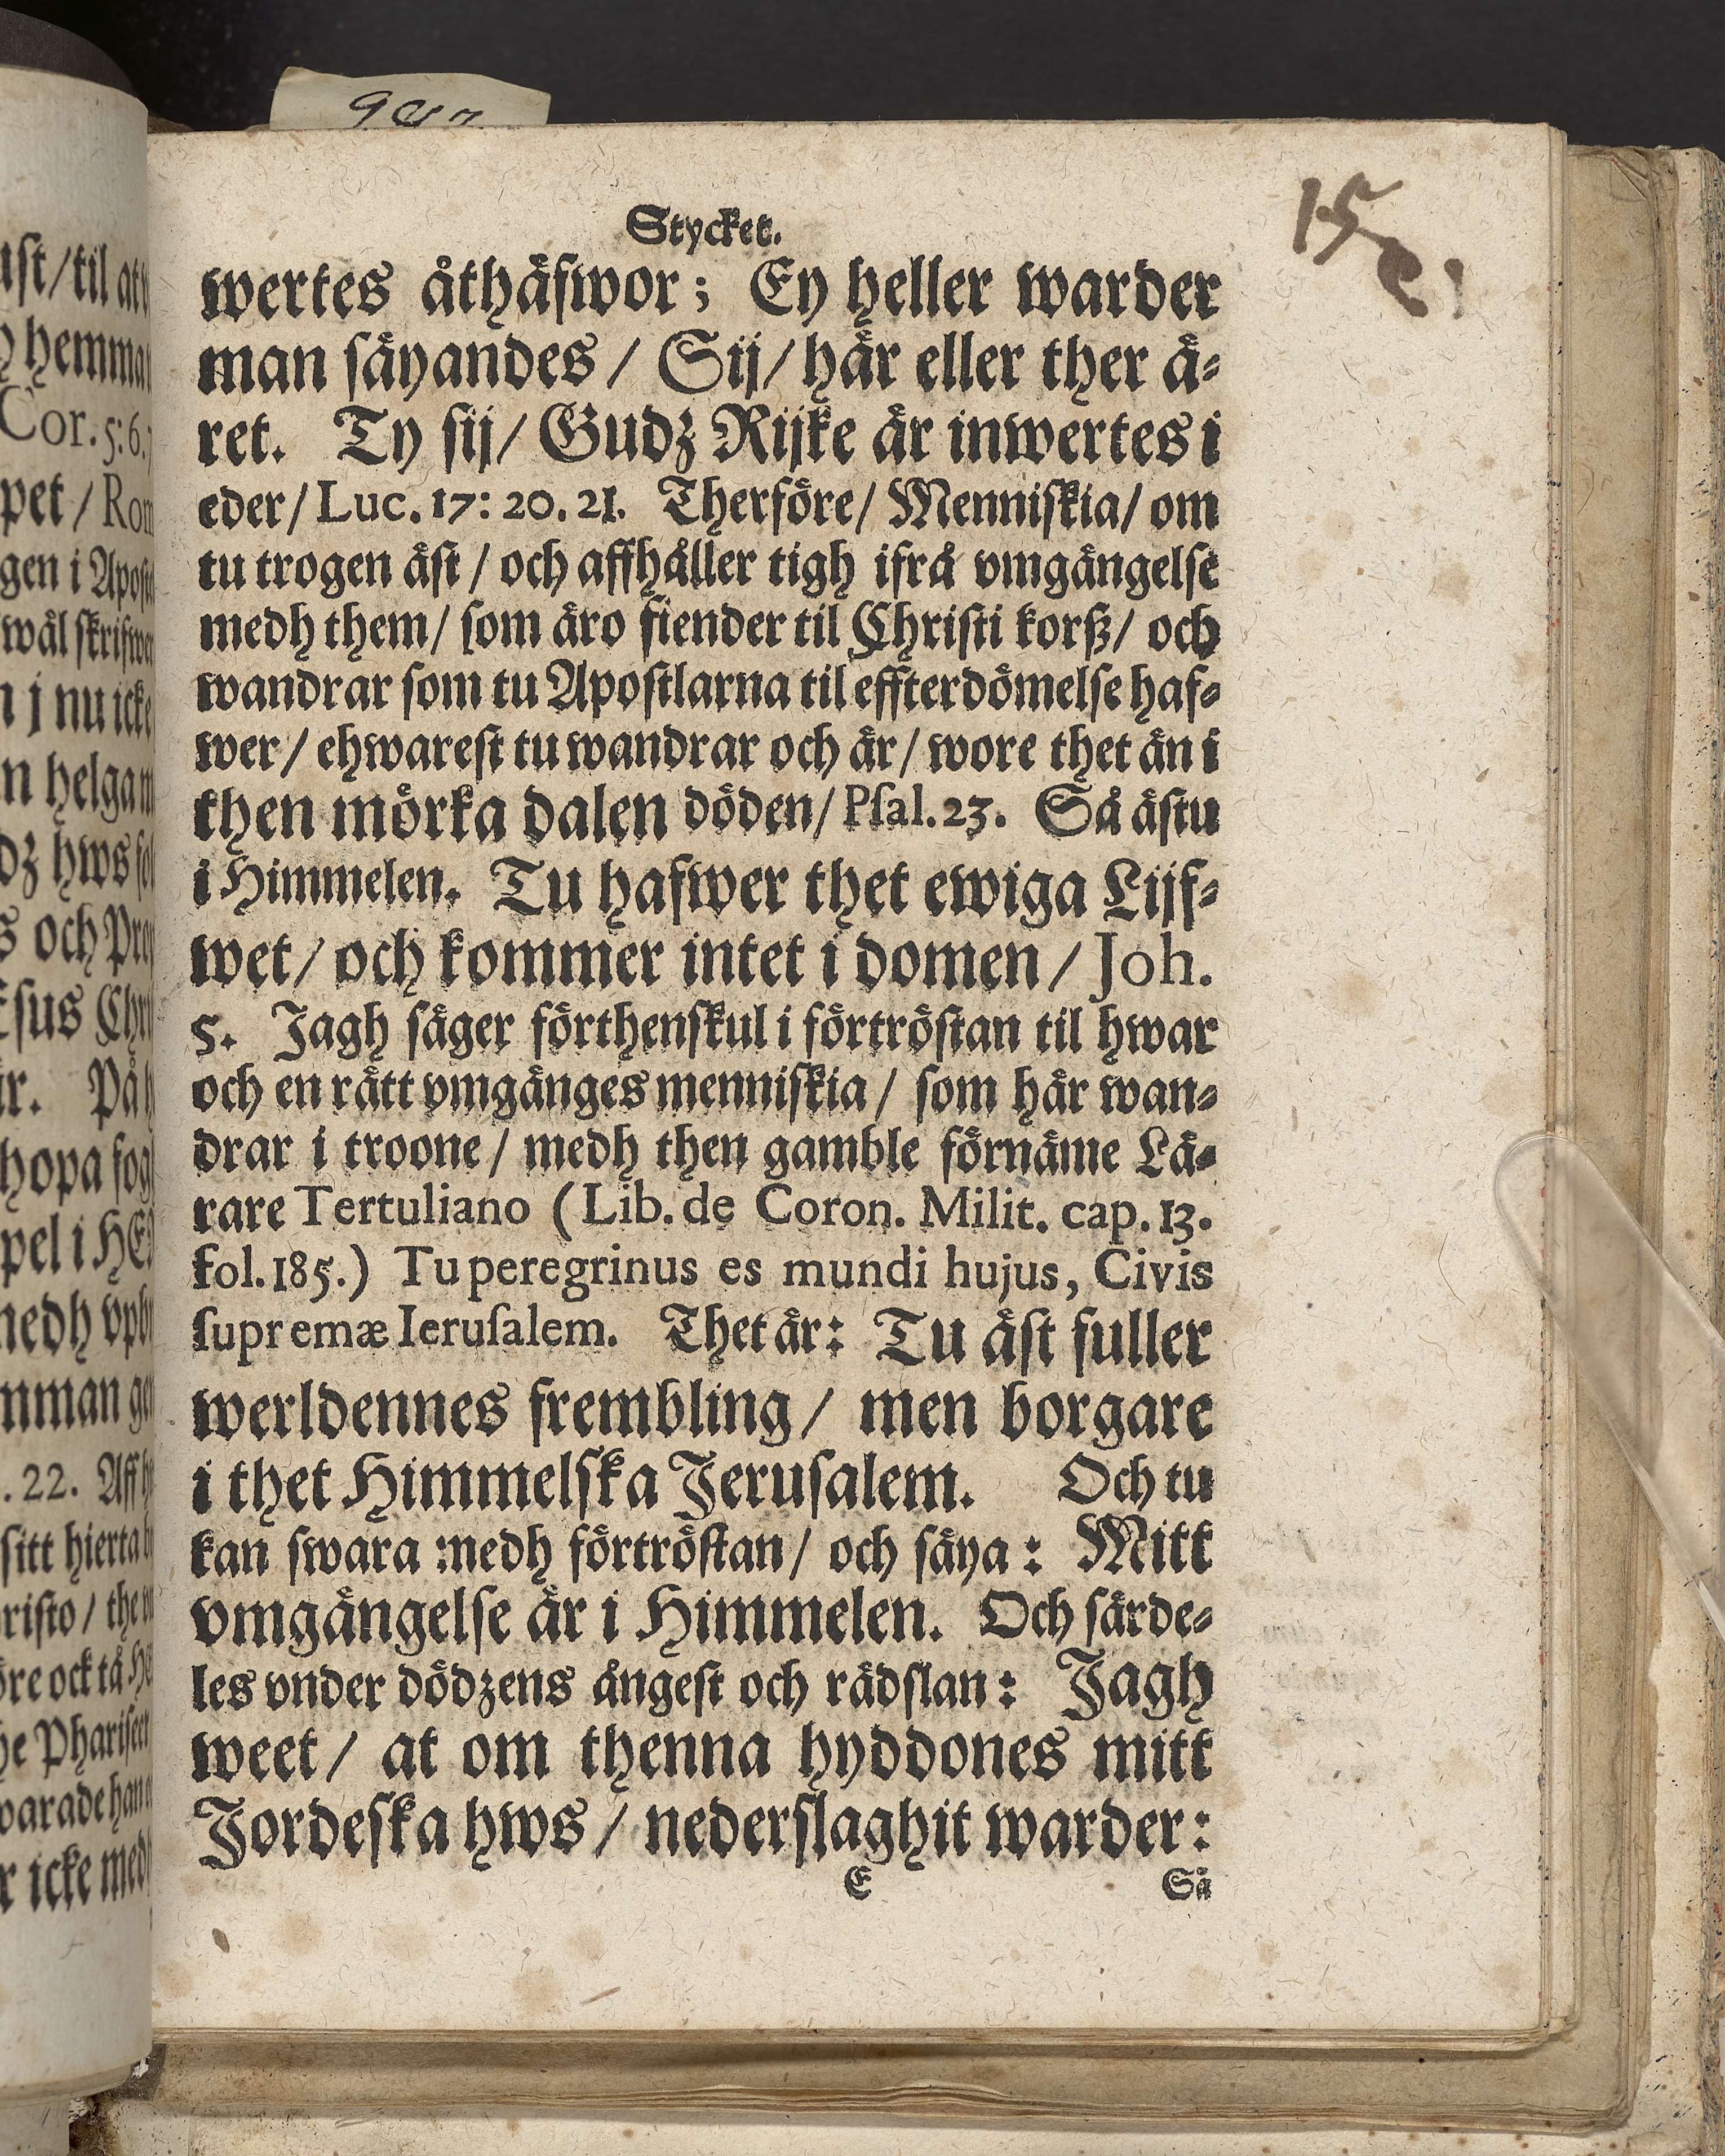 Stycket.
wertes åthäfwor; Ey heller warder
man säyandes / Sij / här eller ther ä-
ret. Ty sij / Gudz Rijke är inwertes i
eder / Luc. 17: 20. 21. Therföre / Menniskia / om
tu trogen äst / och affhåller tigh ifrå vmgängelse
medh them / som äro fiender til Christi korß / och
wandrar som tu Apostlarna til effterdömelse haf-
wer / ehwarest tu wandrar och är / wore thet än i
then mörka dalen döden / Psal. 23. Så ästu
i Himmelen. Tu hafwer thet ewiga Lijf-
wet / och kommer intet i domen / Joh.
5. Jagh säger förthenskul i förtröstan til hwar
och en rätt vmgänges menniskia / som här wan-
drar i troone / medh then gamble förnäme Lä-
rare Tertuliano (Lib. de Coron. Milit. cap. 13.
fol. 185.) Tu peregrinus es mundi hujus, Civis
supremæ Ierusalem. Thet är: Tu äst fuller
werldennes frembling / men borgare
i thet Himmelska Jerusalem. Och tu
kan swara medh förtröstan / och säya: Mitt
vmgängelse är i Himmelen. Och särde-
les vnder dödzens ångest och rädslan: Jagh
weet / at om thenna hyddones mitt
Jordeska hws / nederslaghit warder:
E Så